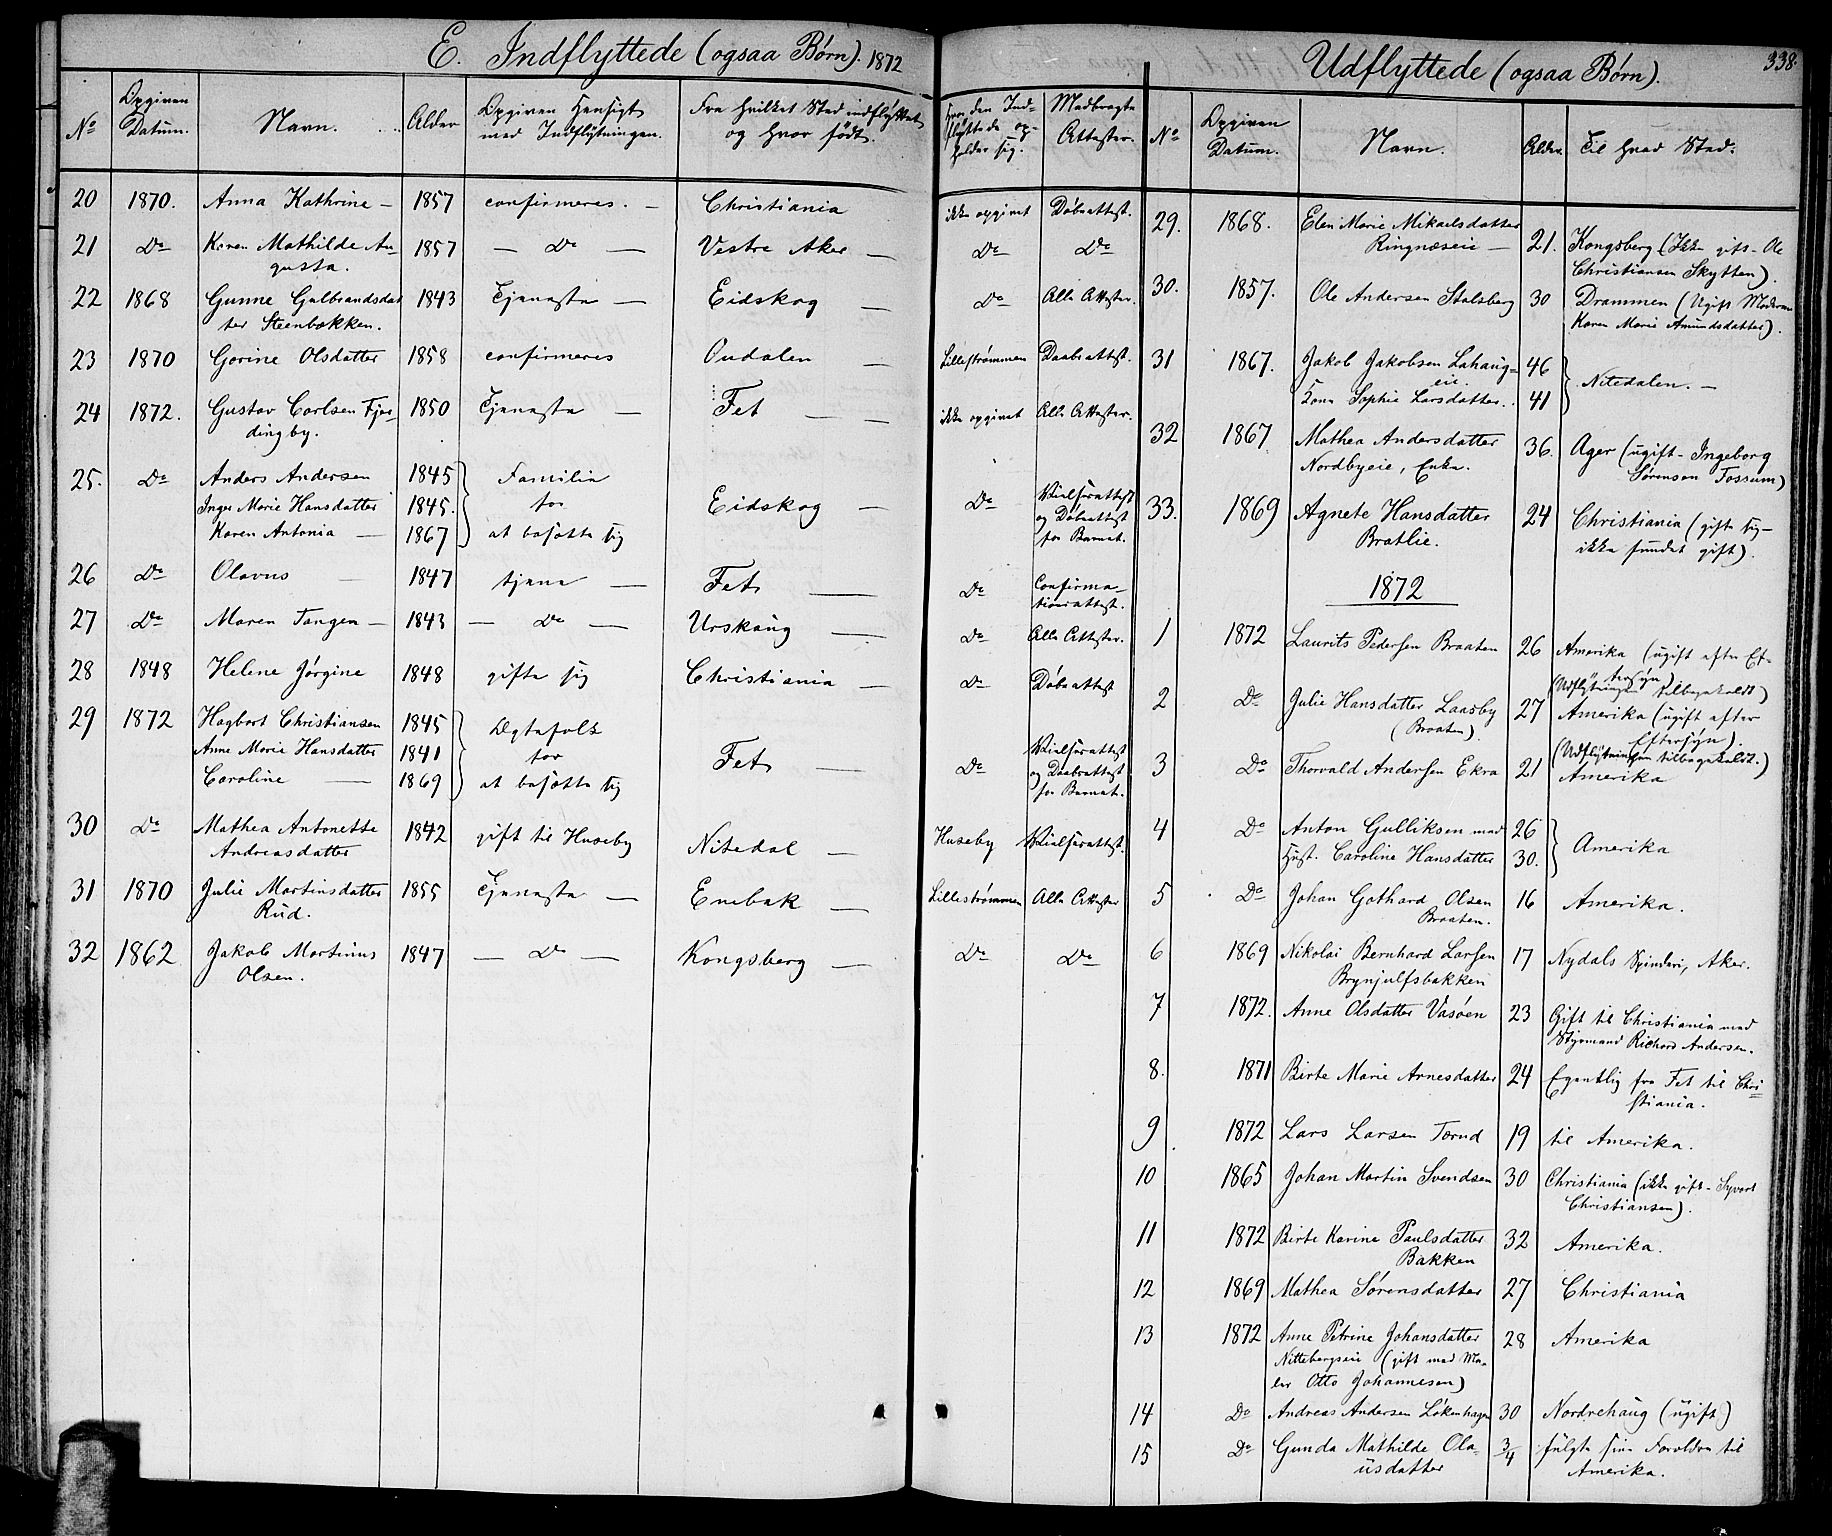 E. Indflyttede (ogsaa Børn). 1872
No
Opgiven Datum.
Navn.
Alder
Opgiven Hensigt med Indflytningen.
Fra hvilket Sted indflyttet og hvor født.
Hvor den Indflyttede opholder sig.
Medbragte Attester.
20 1870. Anna Kathrine – 1857 confirmeres. – Christiania ikke opgivet Døbsattest.
21 Do Karen Mathilde Au- 1857 – Do – Vestre Aker – Do Do
gusta.
22 1868 Gunne Gulbrandsdat 1843 Tjeneste – Eidskog – Do Alle Attester.
ter Steenbakken.
23 1870 Gorine Olsdatter 1858 confirmeres Oudalen Lillestrømmen Daabsattest.
24 1872. Gustav Carlsen Fje- 1850 Tjeneste – Fet – ikke opgivet Alle Attester.
dingby.
25. Do Anders Andersen 1845 Familie
Inger Marie Hansdatter 1845. for Eidskog – Do Vielsesattest og Døbsattest for Barnet.
Karen Antonia – 1867 at bosætte sig
26 Do Olavus – 1847 tjene – Fet – Do Confirmationsattest.
27 Do Maren Tangen – 1843 – Do – Urskoug – Do Alle Attester.
28 1848 Helene Jørgine 1848 gifte sig Christiania – Do Døbsattest
29 1872 Hagbart Christiansen 1845 Ægtefolk
Anne Marie Hansdatter 1841 for Fet – Do Vielsesattest og Daabsattest for Barnet.
Caroline – 1869 at bosætte sig
30 Do Mathea Antonette 1842 gift til Huseby Nitedal – Huseby Vielsesattest.
Andreasdatter
31 1870 Julie Martinsdatter 1855 Tjeneste – Enebak – Lillestrømmen Alle Attester
Rud.
32 1862 Jakob Martinus 1847 – Do – Kongsberg – Do Do
Olsen.
Udflyttede (ogsaa Børn). 338
No
Opgiven Datum.
Navn.
Alder.
Til hvad Sted.
29. 1868. Elen Marie Mikaelsdatter
Ringnæseie – 21. Kongsberg (Ikke gift – Ole
Christiansen Skytten).
30. 1857. Ole Andersen Stalsberg 30 Drammen (Ugift Moderen
Karen Marie Amundsdatter).
31 1867. Jakob Jakobsen Lahaug- 46
eie.
Kone Sophie Larsdatter. 41 Nitedalen. –
32 1867 Mathea Andersdatter 36. Ager (ugift – Ingeborg
Nordbyeie, Enke. Sørensen Fossum)
33. 1869 Agnete Hansdatter 24 Christiania (gifte sig –
Bratlie. ikke fundet gift).
1872
1 1872 Laurits Pedersen Braaten 26 Amerika (ugift efter Ef-
tersyn)
(Udflytningen tilbagekaldt)
2 Do Julie Hansdatter Laasby 27 Amerika (ugift efter
(Braaten) Eftersyn).
(Udflytningen tilbagekaldt.)
3 Do Thorvald Andersen Ekra 21 Amerika
4 Do Anton Gulliksen med 26
Hust. Caroline Hansdatter 30. Amerika
5 Do Johan Gothard Olsen 16 Amerika.
Braaten.
6 1869 Nikolai Bernhard Larsen 17 Nydals Spinderi, Aker.
Brynjulfsbakken
7 1872. Anne Olsdatter Vasøen 23 Gift til Christiania med
Styrmand Richard Andersen.
8. 1871 Birte Marie Arnesdatter 24 Egentlig fra Fet til Chri-
stiania.
9 1872 Lars Larsen Tornd 19 til Amerika.
10 1865 Johan Martin Svendsen 30 Christiania (ikke gift – Syvert
Christiansen).
11 1872 Birte Karine Paulsdatter 32 Amerika.
Bakken
12 1869 Mathea Sørensdatter 27 Christiania
13 1872 Anne Petrine Johansdatter 28 Amerika
Nittebergseie (gift med Ma-
ler Otto Johannesen)
14 Do Andreas Andersen Løkenhagen 30 Nordrehaug (ugift)
15 Do Gunda Mathilde Ola- 3/4 fulgte sine Forældre til
usdatter Amerika.